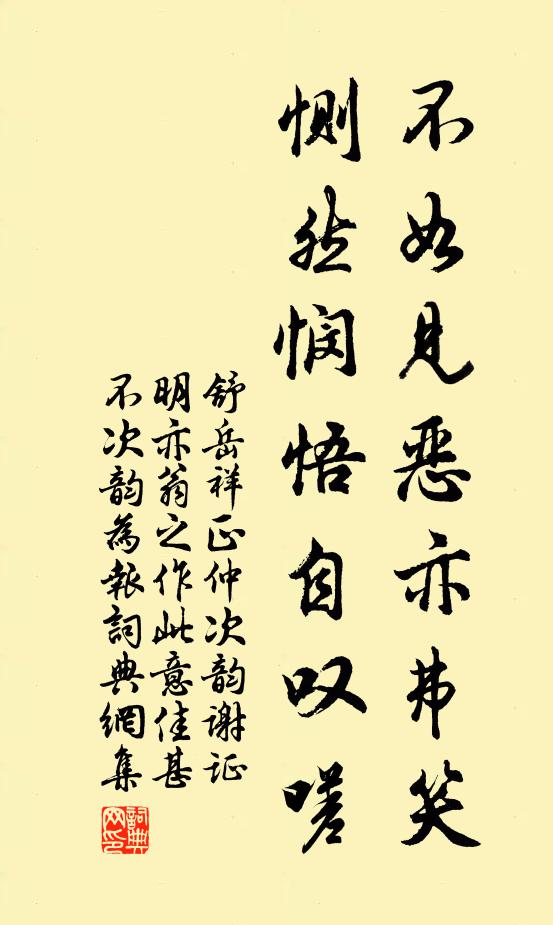 不如见恶亦弗笑
恻然悯悟自叹嗟
舒岳祥正仲次韵谢证
明亦翁之作此意佳甚
不次韵為報詞典網集
詞典
网印